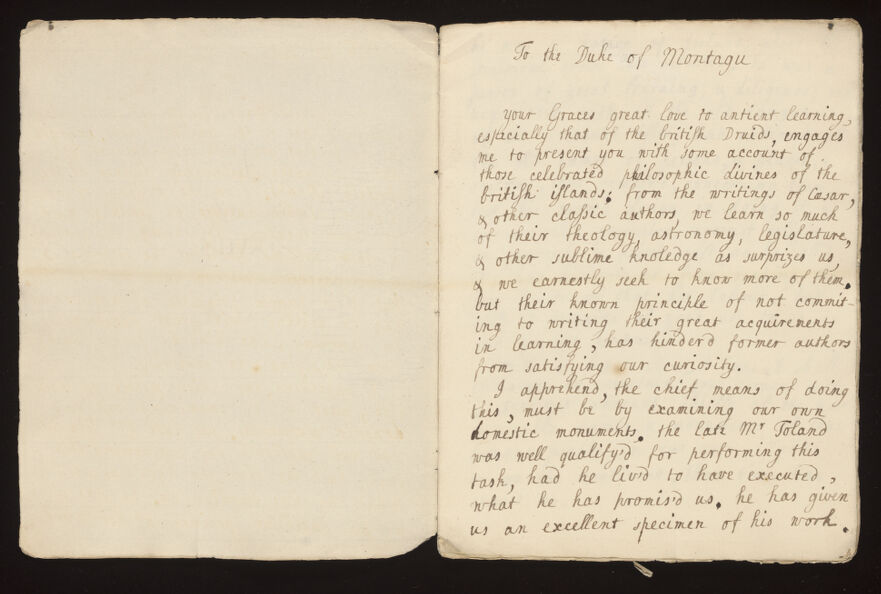 To the Duke of Montagu
your Graces great love to antient learning,
espacially that of the british Druids, engages
me to present you with some account of
those celebrated philosophic divines of the
british islands: from the writings of Cæsar,
& other classic authors, we learn so much
of their theology, astronomy, legislature,
& other sublime knoledge as surprizes us,
& we earnestly seek to know more of them.
but their known principle of not commit-
ing to writing their great acquirements
in learning, has hinderd former authors
from satisfying our curiosity.
I apprehend, the chief means of doing
this, must be by examining our own
domestic monuments. the late Mr Toland
was well qualify'd for performing this
task, had he liv'd to have executed,
what he has promis'd us. he has given
us an excellent specimen of his work.